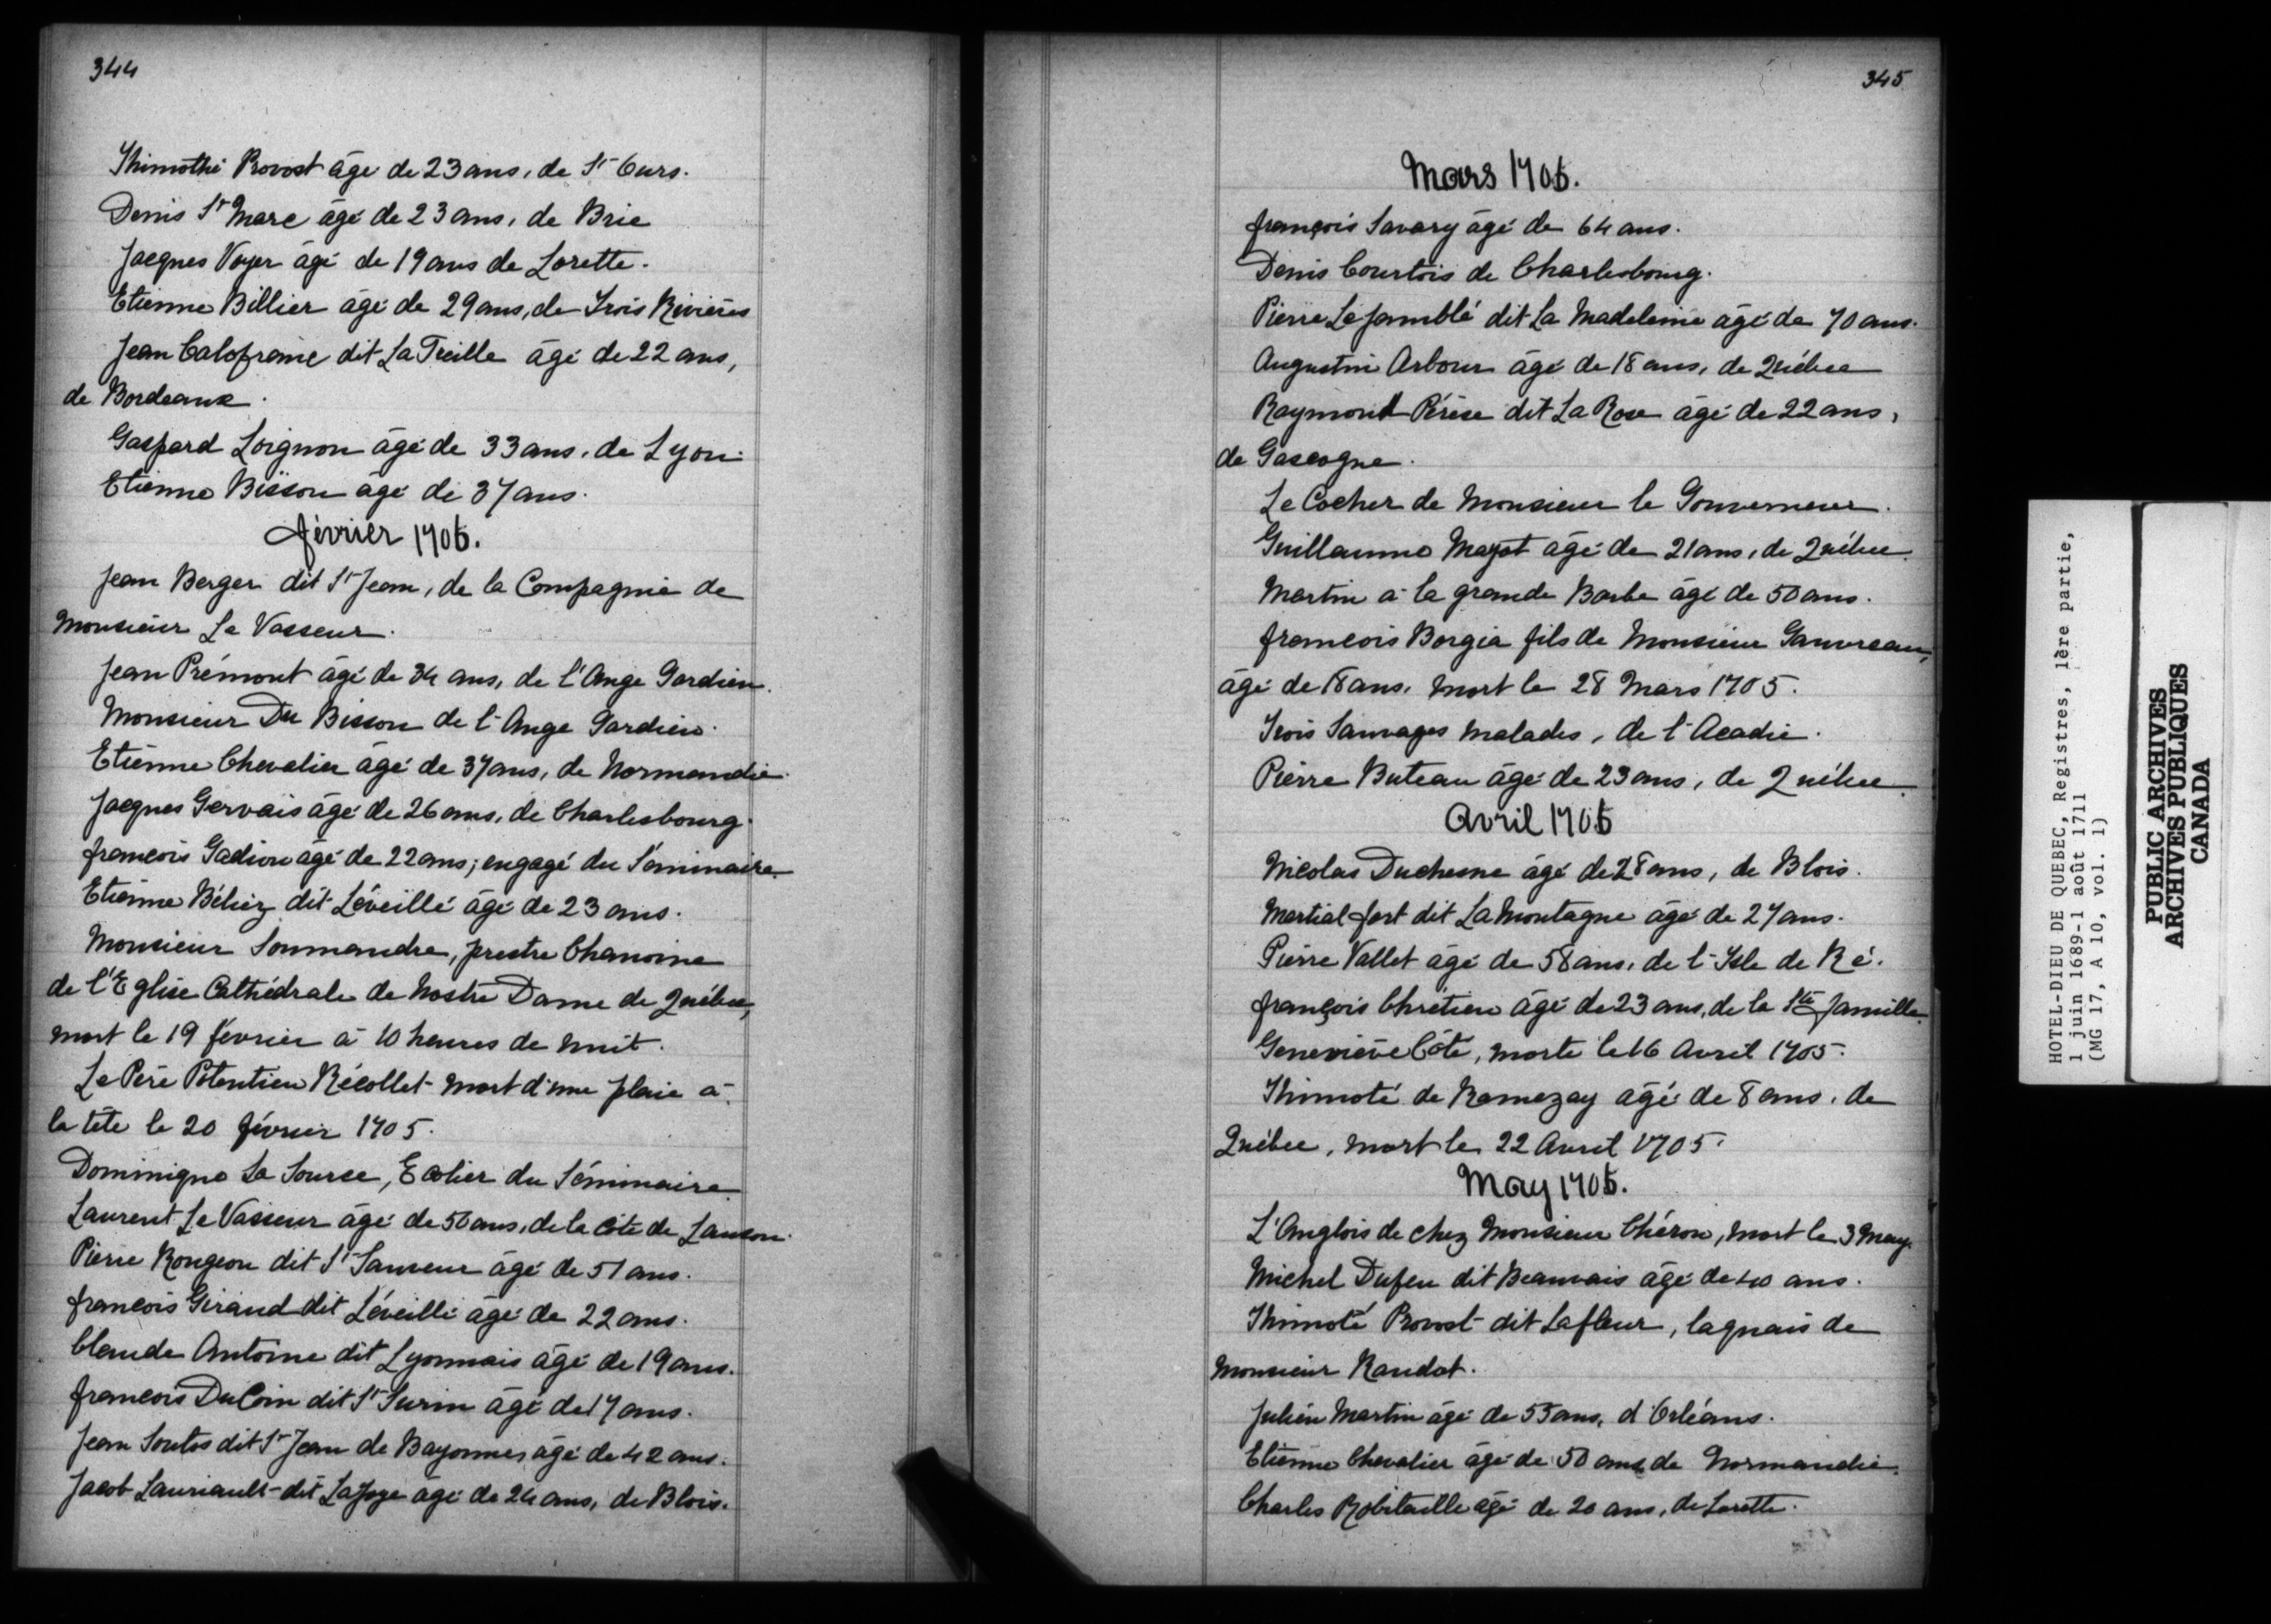 344
Thimothé Provost âgé de 23 ans, de St Ours.
Denis St Marc âgé de 23 ans, de Brie
Jacques Voyer âgé de 19 ans de Lorette.
Etienne Billier âgé de 29 ans, de Trois Rivières
Jean Calofrane dit La Treille âgé de 22 ans,
de Bordeaux.
Gaspard Loignon âgé de 33 ans, de Lyon.
Etienne Bisson âgé de 37 ans.
février 1705.
Jean Berger dit St Jean, de la Compagnie de
Monsieur Le Vasseur.
Jean Prémont âgé de 34 ans, de l'Ange Gardien.
Monsieur Du Bisson de l'Ange Gardien.
Etienne Chevalier âgé de 37 ans, de Normandie.
Jacques Gervais âgé de 26 ans, de Charlesbourg.
françois Gadiou âgé de 22 ans, engagé du Séminaire.
Etienne Béliez dit Léveillé âgé de 23 ans.
Monsieur Soumandre, prestre Chanoine
de l'Eglise Cathédrale de Nostre Dame de Québec,
mort le 19 février à 10 heures de nuit.
Le Père Potentien Récollet mort d'une plaie à
la tête le 20 février 1705.
Dominique La Source, Ecolier du Séminaire.
Laurent Le Vasseur âgé de 56 ans, de la Côte de Lauson.
Pierre Rongeon dit St Sauveur âgé de 51 ans.
françois Giraud dit Léveillé âgé de 22 ans.
Claude Antoine dit Lyonnais âgé de 19 ans.
françois Du Coin dit St Surin âgé de 17 ans.
Jean Soutos dit St Jean de Bayonne, âgé de 42 ans.
Jacob Lauriault dit LaJoye âgé de 24 ans, de Blois.
345
Mars 1705.
françois Savary âgé de 64 ans.
Denis Courtois de Charlesbourg.
Pierre Le jamblé dit La Madeleine âgé de 70 ans.
Augustin Arbour âgé de 18 ans, de Québec
Raymond Pérèse dit La Rose âgé de 22 ans,
de Gascogne.
Le Cocher de Monsieur le Gouverneur.
Guillaume Mayot âgé de 21 ans, de Québec.
Martin à la grande Barbe âgé de 50 ans.
francois Borgia fils de Monsieur Gauvreau,
âgé de 18 ans, mort le 28 Mars 1705.
Trois Sauvages malades, de l'Acadie.
Pierre Buteau âgé de 23 ans, de Québec.
Avril 1705
Nicolas Duchesne âgé de 28 ans, de Blois.
Martial fort dit La Montagne âgé de 27 ans.
Pierre Vallet âgé de 58 ans, de l'Isle de Ré.
françois Chrétien âgé de 23 ans, de la Ste famille.
Geneviève Côté, morte le 16 Avril 1705.
Thimoté de Ramezay âgé de 8 ans, de
Québec, mort le 22 Avril 1705.
May 1705.
L'Anglois de chez Monsieur Chéron, mort le 3 May.
Michel Dufeu dit Beauvais âgé de 40 ans.
Thimoté Provost dit Lafleur, laquais de
Monsieur Raudot.
Julien Martin âgé de 55 ans, d'Orléans.
Etienne Chevalier âgé de 50 ans de Normandie.
Charles Robitaille âgé de 20 ans, de Lorette.
HOTEL-DIEU DE QUEBEC, Registres, 1ère partie,
1 juin 1689-1 août 1711
(MG 17, A 10, vol. 1)
PUBLIC ARCHIVES
ARCHIVES PUBLIQUES
CANADA